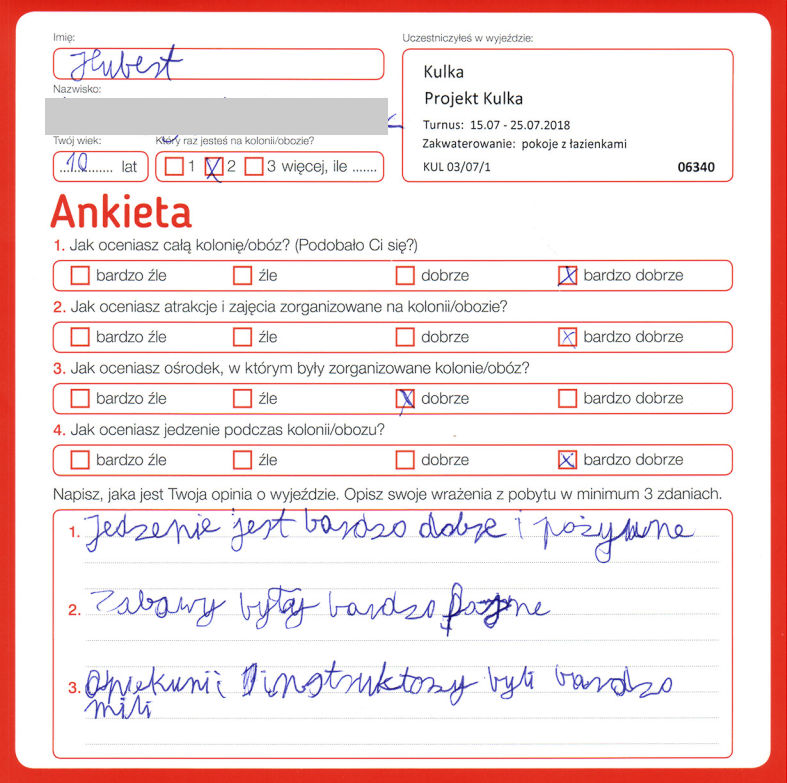 Imię:
Hubert
Uczestniczyłeś w wyjeździe:
Nazwisko:
Kulka
Projekt Kulka
Turnus: 15.07 - 25.07.2018
Zakwaterowanie: pokoje z łazienkami
KUL 03/07/1 06340
Twój wiek: Który raz jesteś na kolonii/obozie?
10 lat 1 2 3 więcej, ile .......
Ankieta
1. Jak oceniasz całą kolonię/obóz? (Podobało Ci się?)
bardzo źle źle dobrze bardzo dobrze
2. Jak oceniasz atrakcje i zajęcia zorganizowane na kolonii/obozie?
bardzo źle źle dobrze bardzo dobrze
3. Jak oceniasz ośrodek, w którym były zorganizowane kolonie/obóz?
bardzo źle źle dobrze bardzo dobrze
4. Jak oceniasz jedzenie podczas kolonii/obozu?
bardzo źle źle dobrze bardzo dobrze
Napisz, jaka jest Twoja opinia o wyjeździe. Opisz swoje wrażenia z pobytu w minimum 3 zdaniach.
1. Jedzenie jest bardzo dobre i pożywne
2. Zabawy były bardzo fajne
3. Opiekunii i instruktorzy byli bardzo
mili